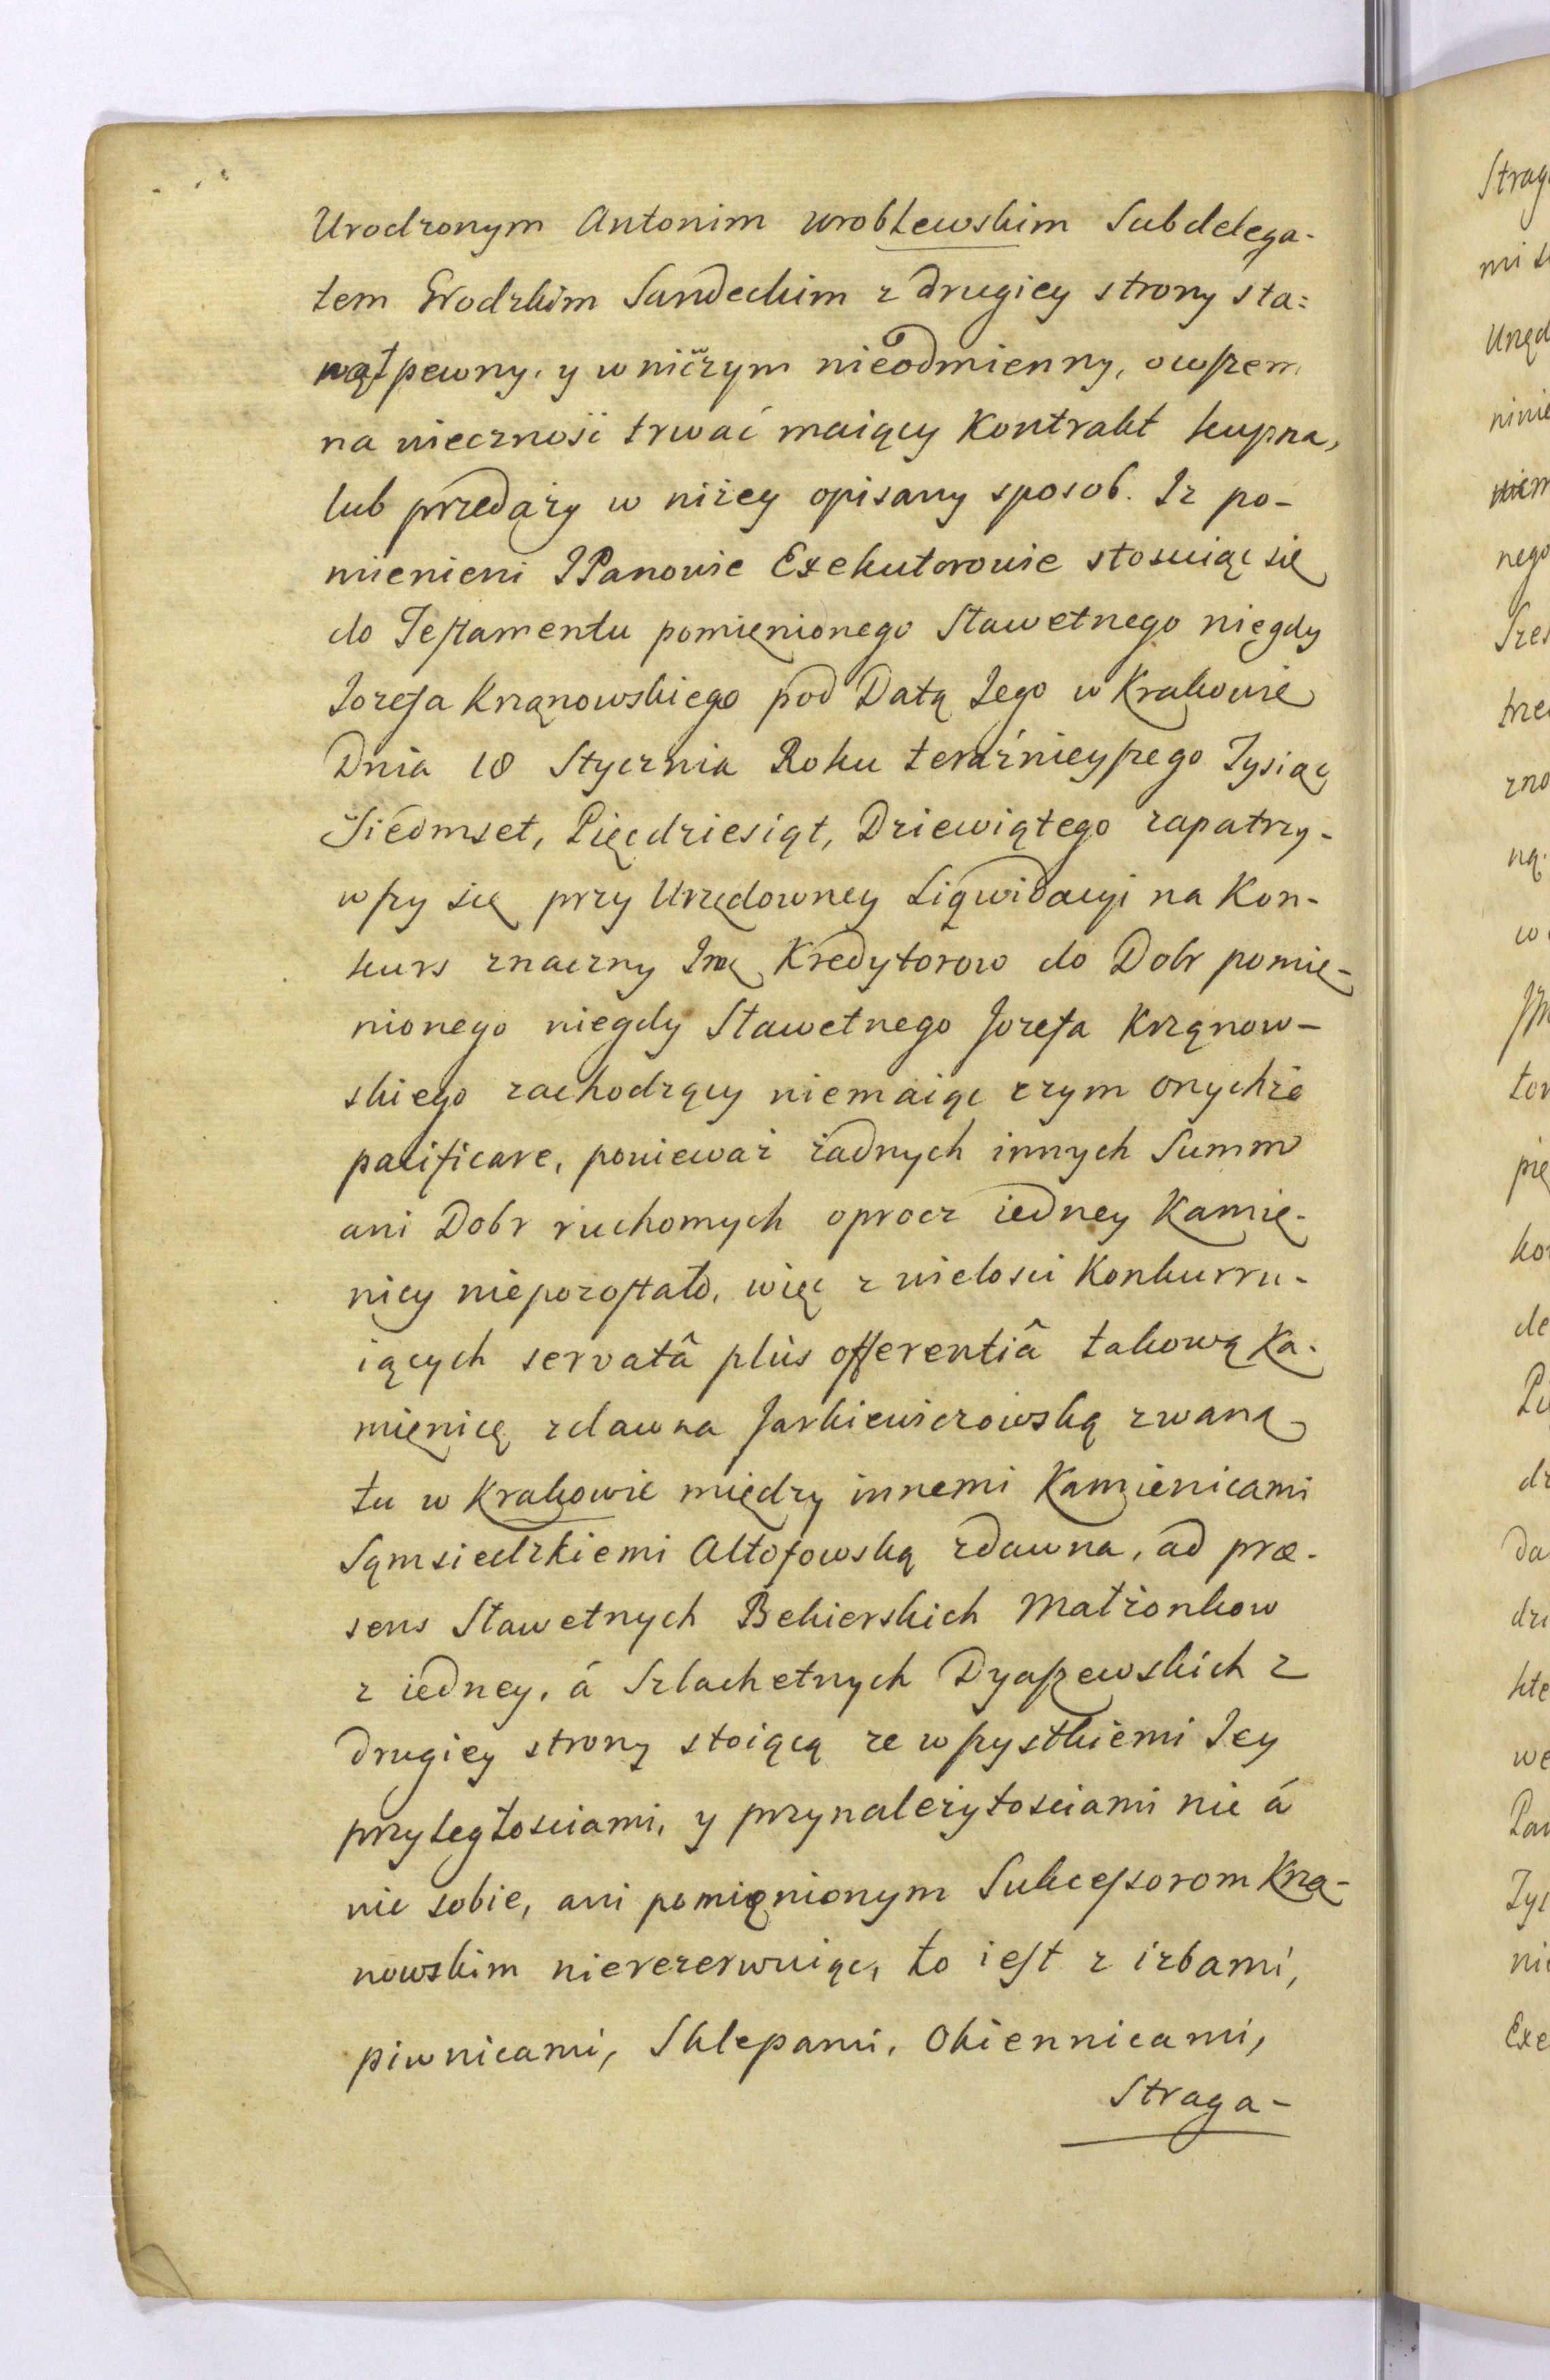 Urodzonym Antonim wrobLewskim Subdelega-
tem Grodzkim Sandeckim z drugiey strony sta=
nął pewny, y w niczym nieodmienny, owszem
na wieczność trwać maiący Kontrakt kupna,
lub przedaży w niżey opisany sposob. Iż po-
mienieni JPanowie Exekutorowie stosuiąc się
do Testamentu pomięnionego Sławetnego nięgdy
Jozefa Krząnowskiego pod Datą Jego w Krakowie
Dnia 18 Stycznia Roku teraźnieyszego Tysiąc
Siedmset, Pięcdziesiąt, Dziewiątego zapatrzy-
wszy się przy Urzędowney Liqwidacyi na Kon-
kurs znaczny Ime Kredytorow do Dobr pomię-
nionego niegdy Sławetnego Jozefa Krząnow-
skiego zachodzący niemaiąc czym onychże
pacificare, ponieważ żadnych innych Summ
ani Dobr ruchomych oprocz iedney Kamię-
nicy niepozostało, więc z wielosci Konkurru-
iących servatâ plùs offerentiâ takową Ka-
mięnicę zdawna Jarkiewiczowską zwaną
tu w Krakowie między innemi Kamienicami
Sąmsiedzkiemi Altofowską zdawna, ad præ-
sens Sławetnych Bekierskich Małżonkow
z iedney, á Szlachetnych Dyaszewskich z
drugiey strony stoiącą ze wszystkiemi Jey
przyległosciami, y przynależytosciami nic á
nic sobie, ani pomięnionym Sukcessorom Krzą-
nowskim nierezerwuiąc, to iest z izbami,
piwnicami, Sklepami, Okiennicami,
Straga-

Strag
mi
Urzęd
ninie
nego
trze
zno
ną.
w
pię
ko
de
dz
da
drz
kte
we
Pan
Tys
ni
Exe